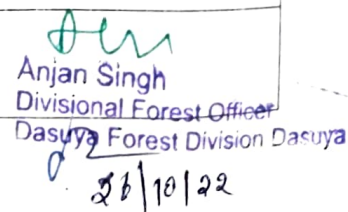 Anjan Singh
Divisional Forest Officer
Dasuya Forest Division Dasuya
26/10/22